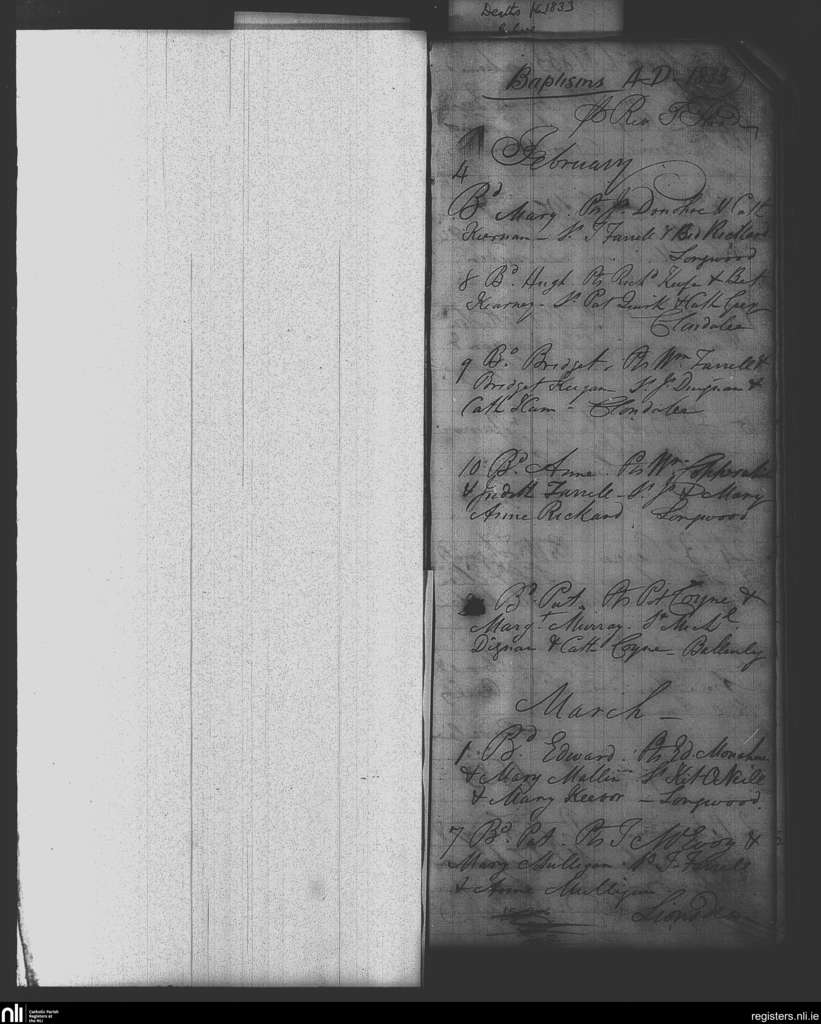 Deaths 1833
Baptisms A.D. 1833
Rev
February
4
Bd Mary. Ps J. Donohoe & Cath
Kiernan - Ss T Farrell & Bid Rickard
Longwood
8 Bd. Hugh Ps Richd Keefe & Bet
Kearney - Ss Pat Quirk & Cath
Clondalee
9 Bd. Bridget. Ps Wm Farrell &
Bridget Keegan Ss J. Duignan &
Cath Ham - Clondalee
10 Bd. Anne. Ps Wm
& Judith Farrell - Ss Js & Mary
Anne Rickard Longwood
Bd Pat. Ps Pat Coyne &
Margt Murray. Ss Michl
Dignan & Cath Coyne -
March -
1 Bd. Edward. Ps Ed Monahan
& Mary Mallin Ss Kit O Neill
& Mary Keevor - Longwood.
7 Bd. Pat. Ps T McEvoy &
Mary Mulligan Ss F. Farrell
& Anne Mulligan
nli
Catholic Parish
Registers at
the NLI
registers.nli.ie